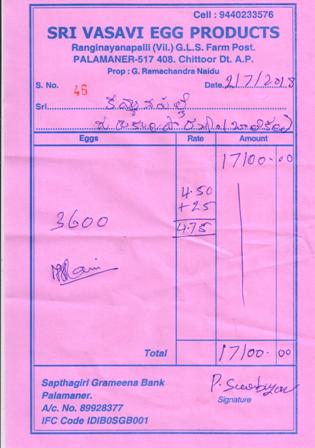 Cell : 9440233576
SRI VASAVI EGG PRODUCTS
Ranginayanapalli (Vil.) G.L.S. Farm Post.
PALAMANER-517 408. Chittoor Dt. A.P.
Prop : G. Ramachandra Naidu
S. No. 46 Date 2/7/2018
Sri
Eggs Rate Amount
17100.00
4.50
+25
3600 4.75
Total 17100.00
Sapthagiri Grameena Bank
Palamaner.
A/c. No. 89928377
IFC Code IDIB0SGB001
Signature